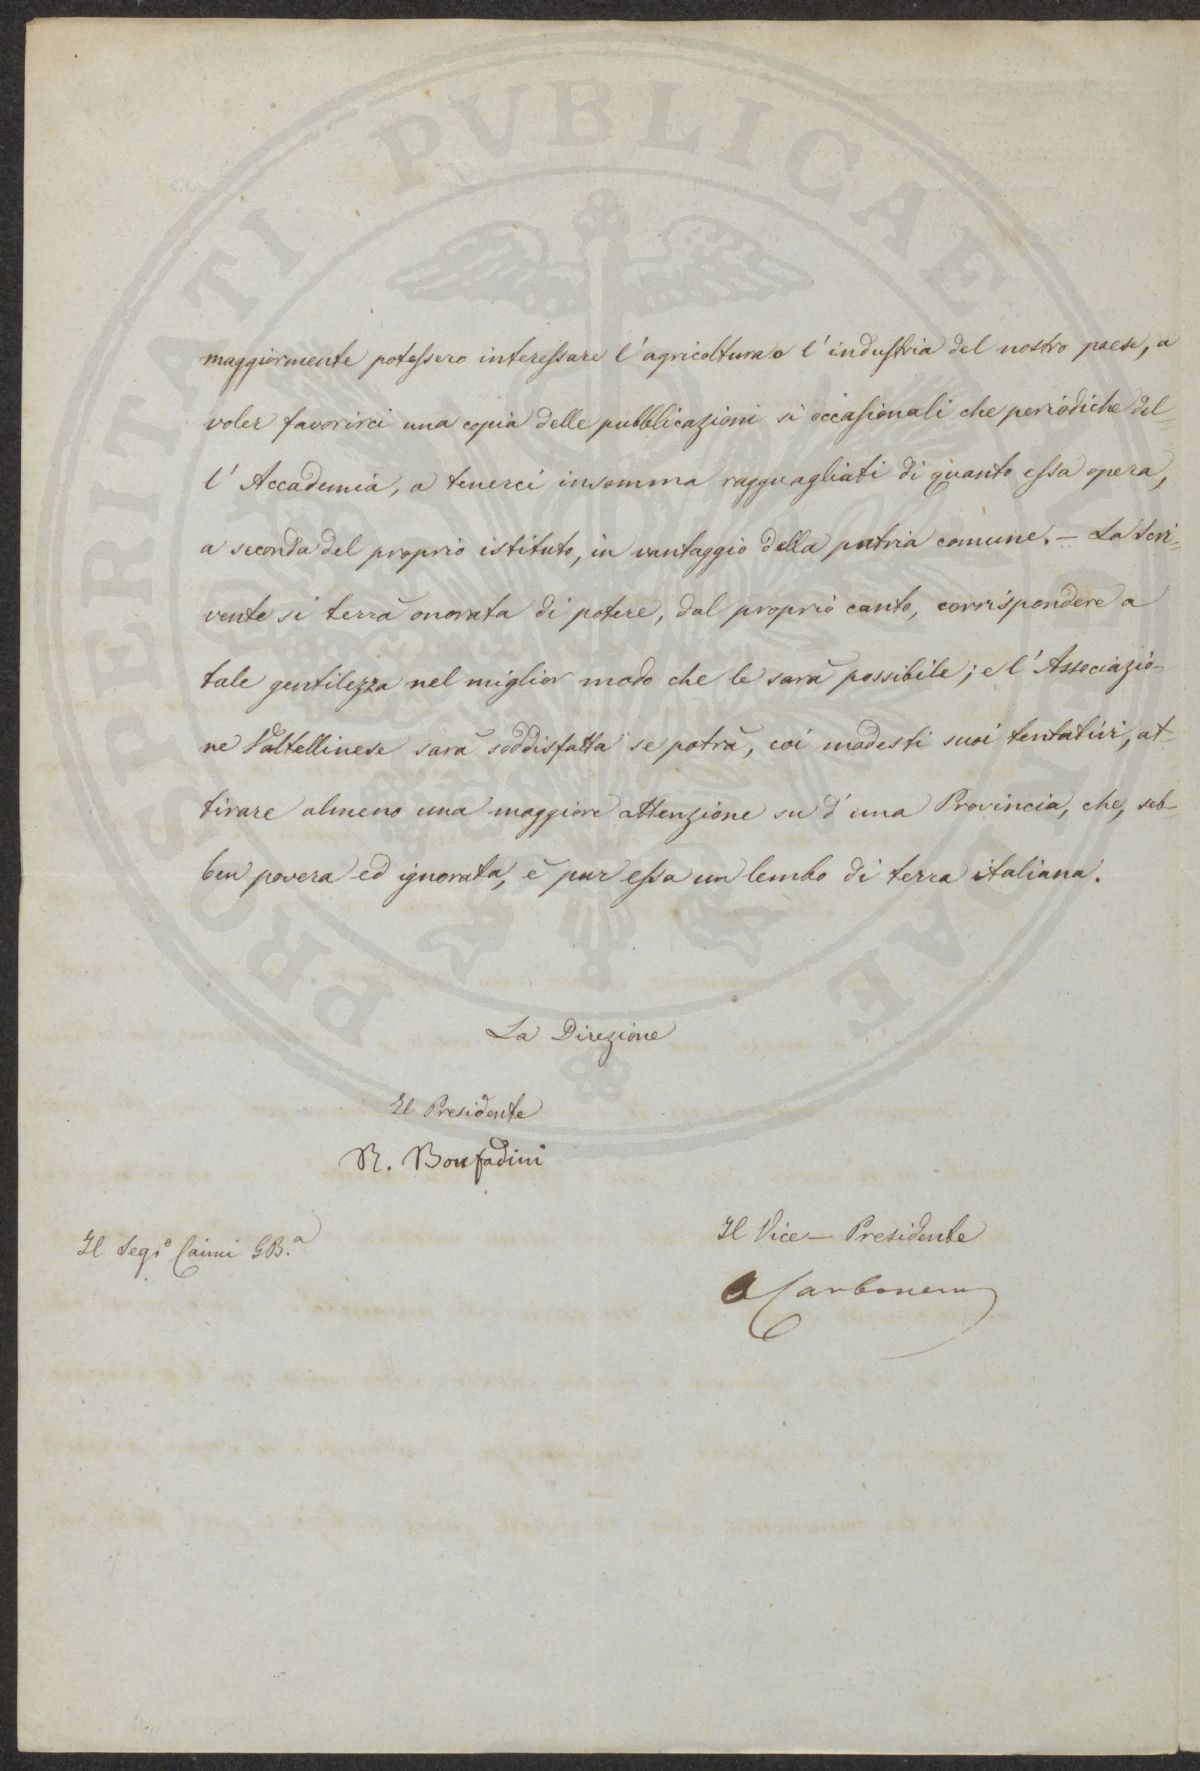 PROSPERITATI PVBLICAE AVGENDAE
maggiormente potessero interessare l'agricoltura o l'industria del nostro paese, a
voler favorirci una copia delle pubblicazioni sì occasionali che periodiche del=
l'Accademia, a tenerci insomma ragguagliati di quanto essa opera,
a seconda del proprio istituto, in vantaggio della patria comune. — La Scri=
vente si terrà onorata di potere, dal proprio canto, corrispondere a
tale gentilezza nel miglior modo che le sarà possibile; e l'Associazio-
ne Valtellinese sarà soddisfatta se potrà, coi modesti suoi tentativi, at
tirare almeno una maggiore attenzione su d'una Provincia, che, seb-
ben povera ed ignorata, è pur essa un lembo di terra italiana.
La Direzione
Il Presidente
R. Bonfadini
Il Vice — Presidente
Carbonera
Il Segr.o Caimi GB.a